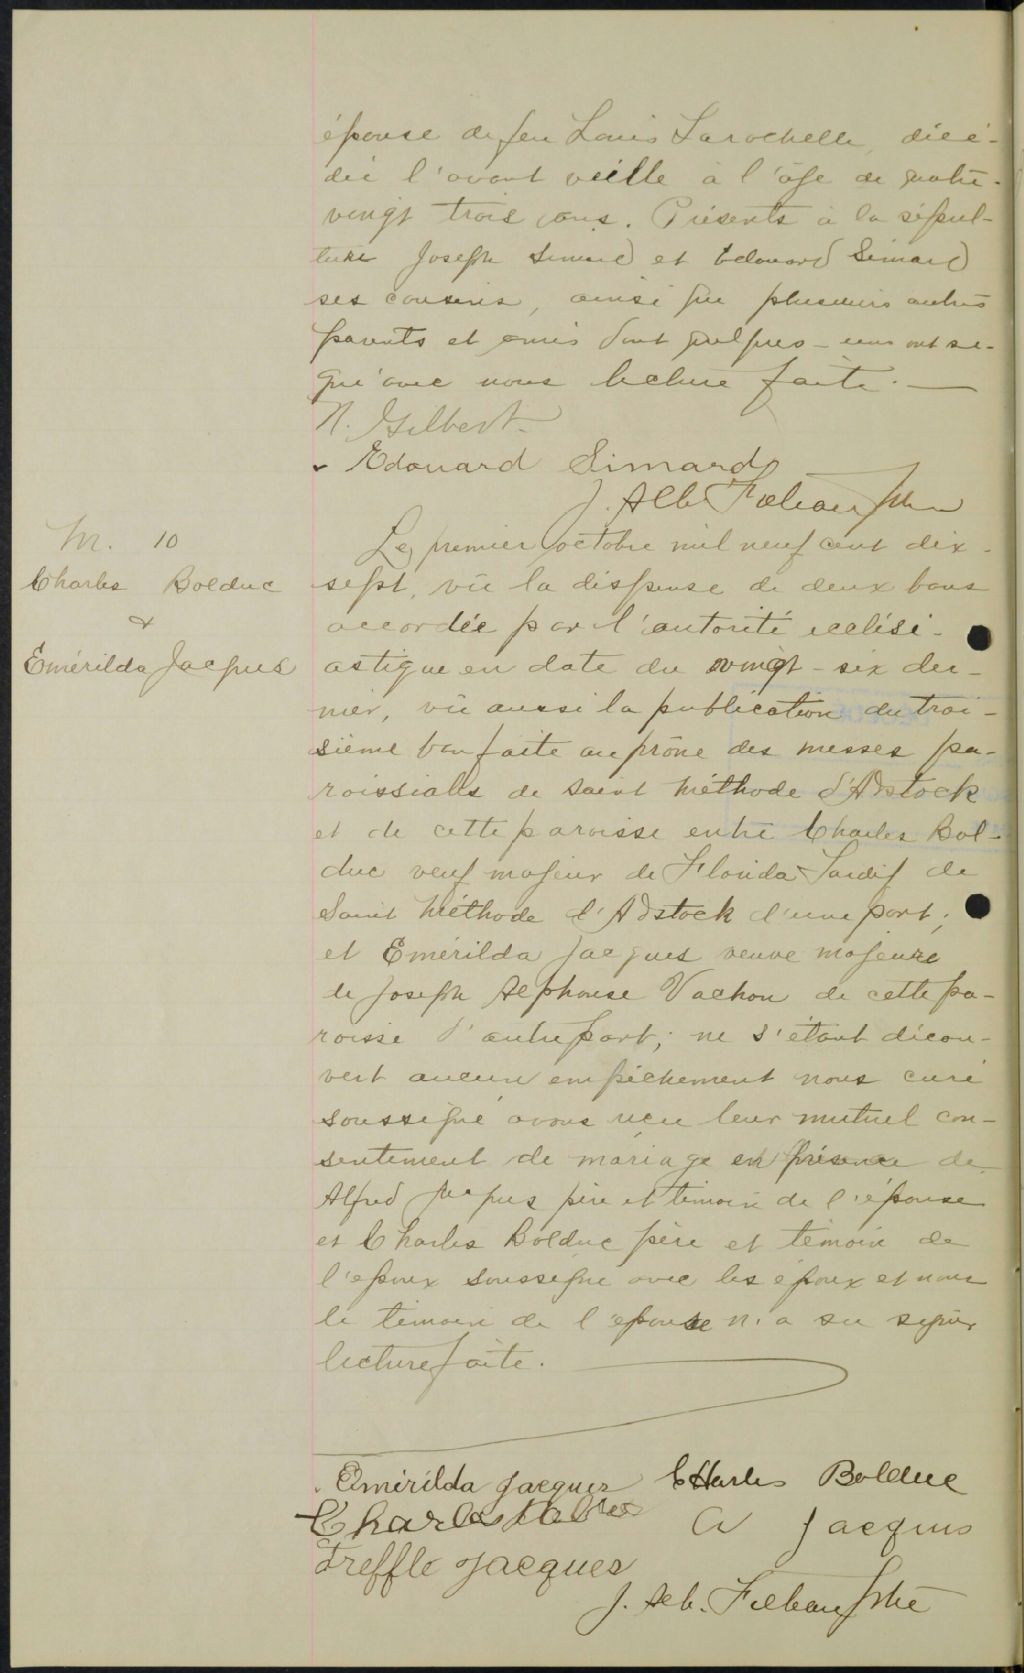 épouse de feu Louis Larochelle, décé-
dée l'avant veille à l'âge de quatre-
vingt trois ans. Présents à la sépul-
ture Joseph Simard et Edouard Simard
ses cousins, ainsi que plusieurs autres
parents et amis dont quelques-uns ont si-
gné avec nous lecture faite.
N. Gilbert
Edouard Simard
J. Alb.
M. 10
Charles Bolduc
&
Emérilda Jacques
Le premier octobre mil neuf cent dix-
sept, vu la dispense de deux bans
accordée par l'autorité ecclési-
astique en date du vingt-six der-
nier, vu aussi la publication du troi-
sième ban faite au prône des messes pa-
roissiales de Saint Méthode d'Adstock
et de cette paroisse entre Charles Bol-
duc veuf majeur de Florida Tardif de
Saint Méthode d'Adstock d'une part;
et Emérilda Jacques veuve majeure
de Joseph Alphonse Vachon de cette pa-
roisse d'autre part; ne s'étant décou-
vert aucun empêchement nous curé
soussigné avons reçu leur mutuel con-
sentement de mariage en présence de
Alfred Jacques père et témoin de l'épouse
et Charles Bolduc père et témoin de
l'époux soussigné avec les époux et nous
le témoin de l'épouse n'a su signer
lecture faite.
Emérilda Jacques CHarles Bolduc
Charles A Jacques
Treffle Jacques
J. Alb. Ptre